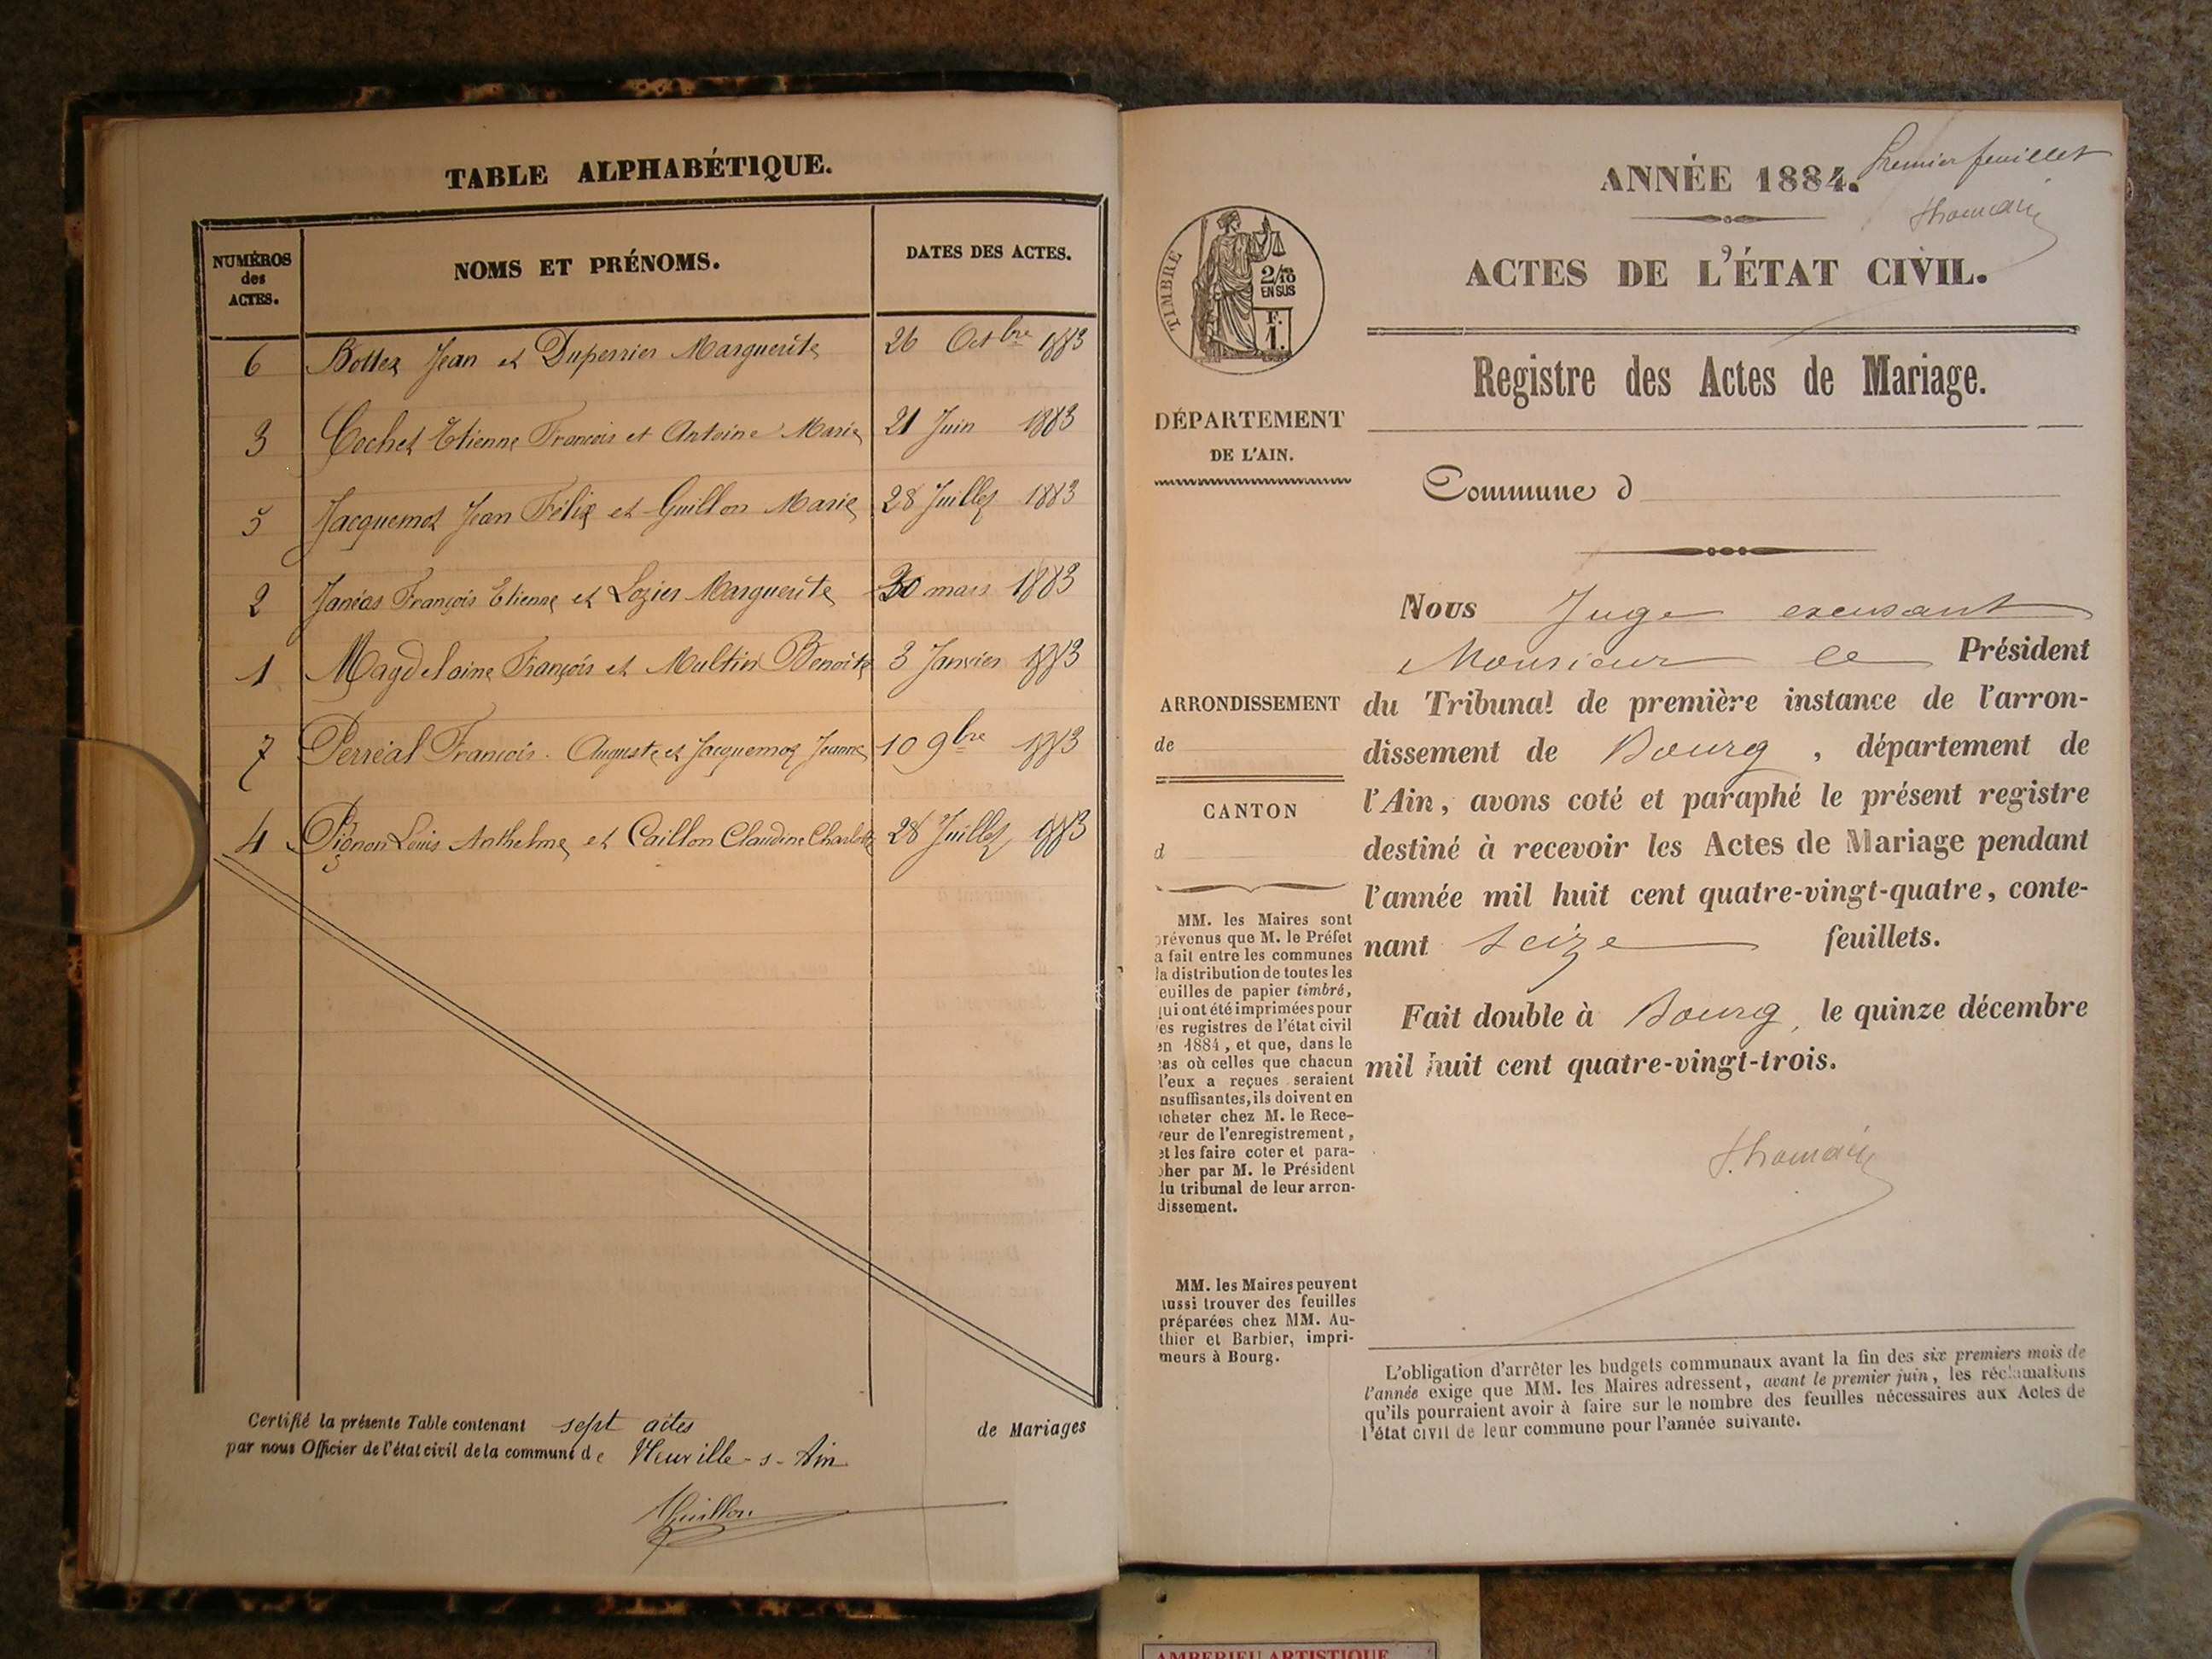 TABLE ALPHABÉTIQUE.
NUMÉROS
des
ACTES.
NOMS ET PRÉNOMS.
DATES DES ACTES.
6 Bottex Jean et Duperrier Marguerite 26 Octbre 1883
3 Cochet Etienne François et Antoine Marie 21 Juin 1883
5 Jacquemet Jean Félix et Guillon Marie 28 Juillet 1883
2 Janéas François Etienne et Lozier Marguerite 30 mars 1883
1 Magdelaine François et Multin Benoite 3 Janvier 1883
7 Perréal François Auguste et Jacquemoz Jeanne 10 9bre 1883
4 Louis Anthelme et Caillon Claudine Charlotte 28 Juillet 1883
Certifié la présente Table contenant sept actes de Mariages
par nous Officier de l'état civil de la commune de Neuville-s-Ain
Guillon
Premier feuillet
ANNÉE 1884.
TIMBRE
2/10
EN SUS
F.
1.
ACTES DE L'ÉTAT CIVIL.
Registre des Actes de Mariage.
DÉPARTEMENT
DE L'AIN.
Commune d
ARRONDISSEMENT
de
CANTON
d
Nous Juge excusant
Monsieur le Président
du Tribunal de première instance de l'arron-
dissement de Bourg, département de
l'Ain, avons coté et paraphé le présent registre
destiné à recevoir les Actes de Mariage pendant
l'année mil huit cent quatre-vingt-quatre, conte-
nant seize feuillets.
Fait double à Bourg, le quinze décembre
mil huit cent quatre-vingt-trois.
MM. les Maires sont
prévenus que M. le Préfet
a fait entre les communes
la distribution de toutes les
euilles de papier timbré,
qui ont été imprimées pour
es registres de l'état civil
en 1884, et que, dans le
cas où celles que chacun
l'eux a reçues seraient
nsuffisantes, ils doivent en
acheter chez M. le Rece-
veur de l'enregistrement,
et les faire coter et para-
pher par M. le Président
du tribunal de leur arron-
dissement.
MM. les Maires peuvent
aussi trouver des feuilles
préparées chez MM. Au-
thier et Barbier, impri-
meurs à Bourg.
L'obligation d'arrêter les budgets communaux avant la fin des six premiers mois de
l'année exige que MM. les Maires adressent, avant le premier juin, les réclamations
qu'ils pourraient avoir à faire sur le nombre des feuilles nécessaires aux Actes de
l'état civil de leur commune pour l'année suivante.
AMBERIEU ARTISTIQUE